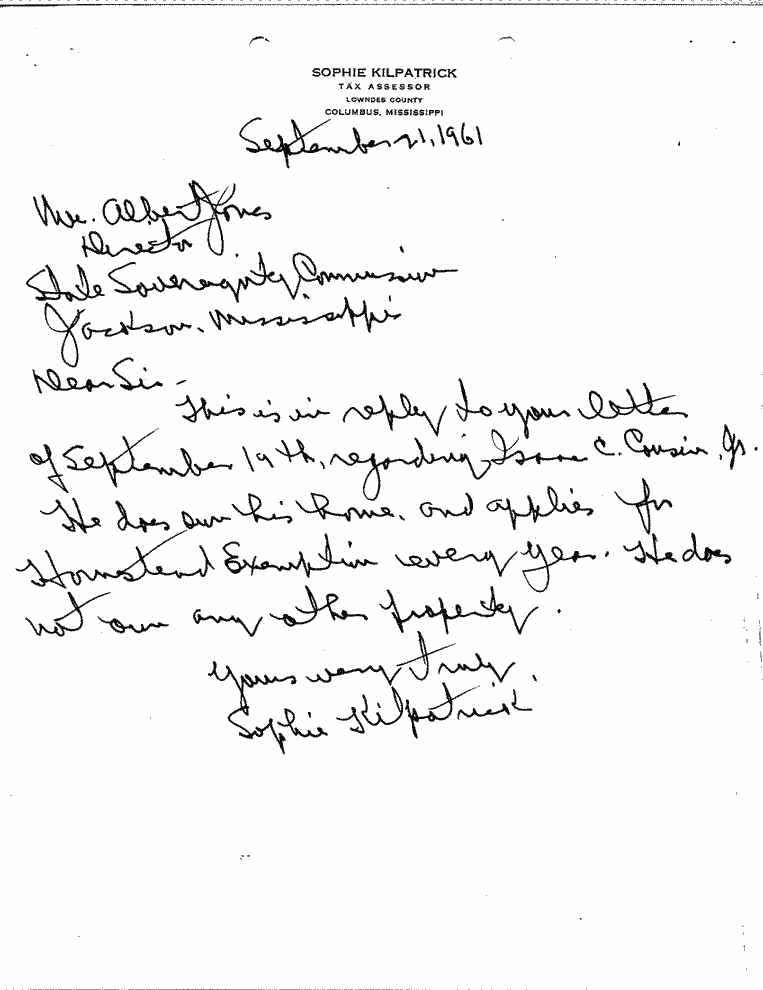 SOPHIE KILPATRICK
TAX ASSESSOR
LOWNDES COUNTY
COLUMBUS, MISSISSIPPI
September 21, 1961
Mr. Albert Jones
Director
State Sovereignty Commission
Jackson, Mississippi
Dear Sir -
This is in reply to your letter
of September 19th, regarding Isaac C. Cousin, Jr.
He does own his home, and applies for
Homestead Exemption every year. He does
not own any other property.
Yours very truly,
Sophie Kilpatrick